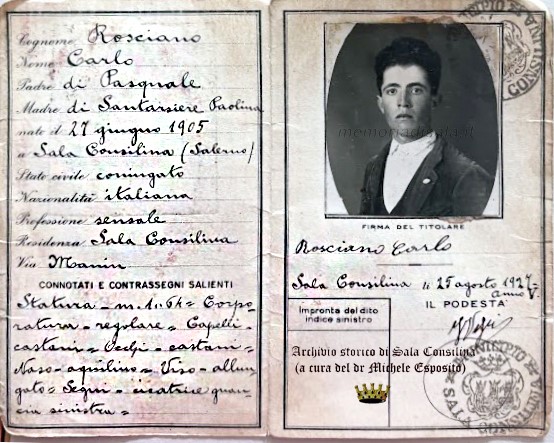 Cognome Rosciano
Nome Carlo
Padre di Pasquale
Madre di Santarsiere Paolina
nato il 27 giugno 1905
a Sala Consilina (Salerno)
Stato civile coniugato
Nazionalità italiana
Professione sensale
Residenza Sala Consilina
Via Manin
CONNOTATI E CONTRASSEGNI SALIENTI
Statura - m. 1.64 = Corpo-
ratura - regolare = Capelli -
castani = Occhi - castani =
Naso - aquilino = Viso - allun
gato = Segni - cicatrice guan
cia sinistra =
FIRMA DEL TITOLARE
Rosciano Carlo
Sala Consilina li 25 agosto 1927
anno V
IL PODESTA'
Impronta del dito
indice sinistro
Archivio storico di Sala Consilina
(a cura del dr Michele Esposito)